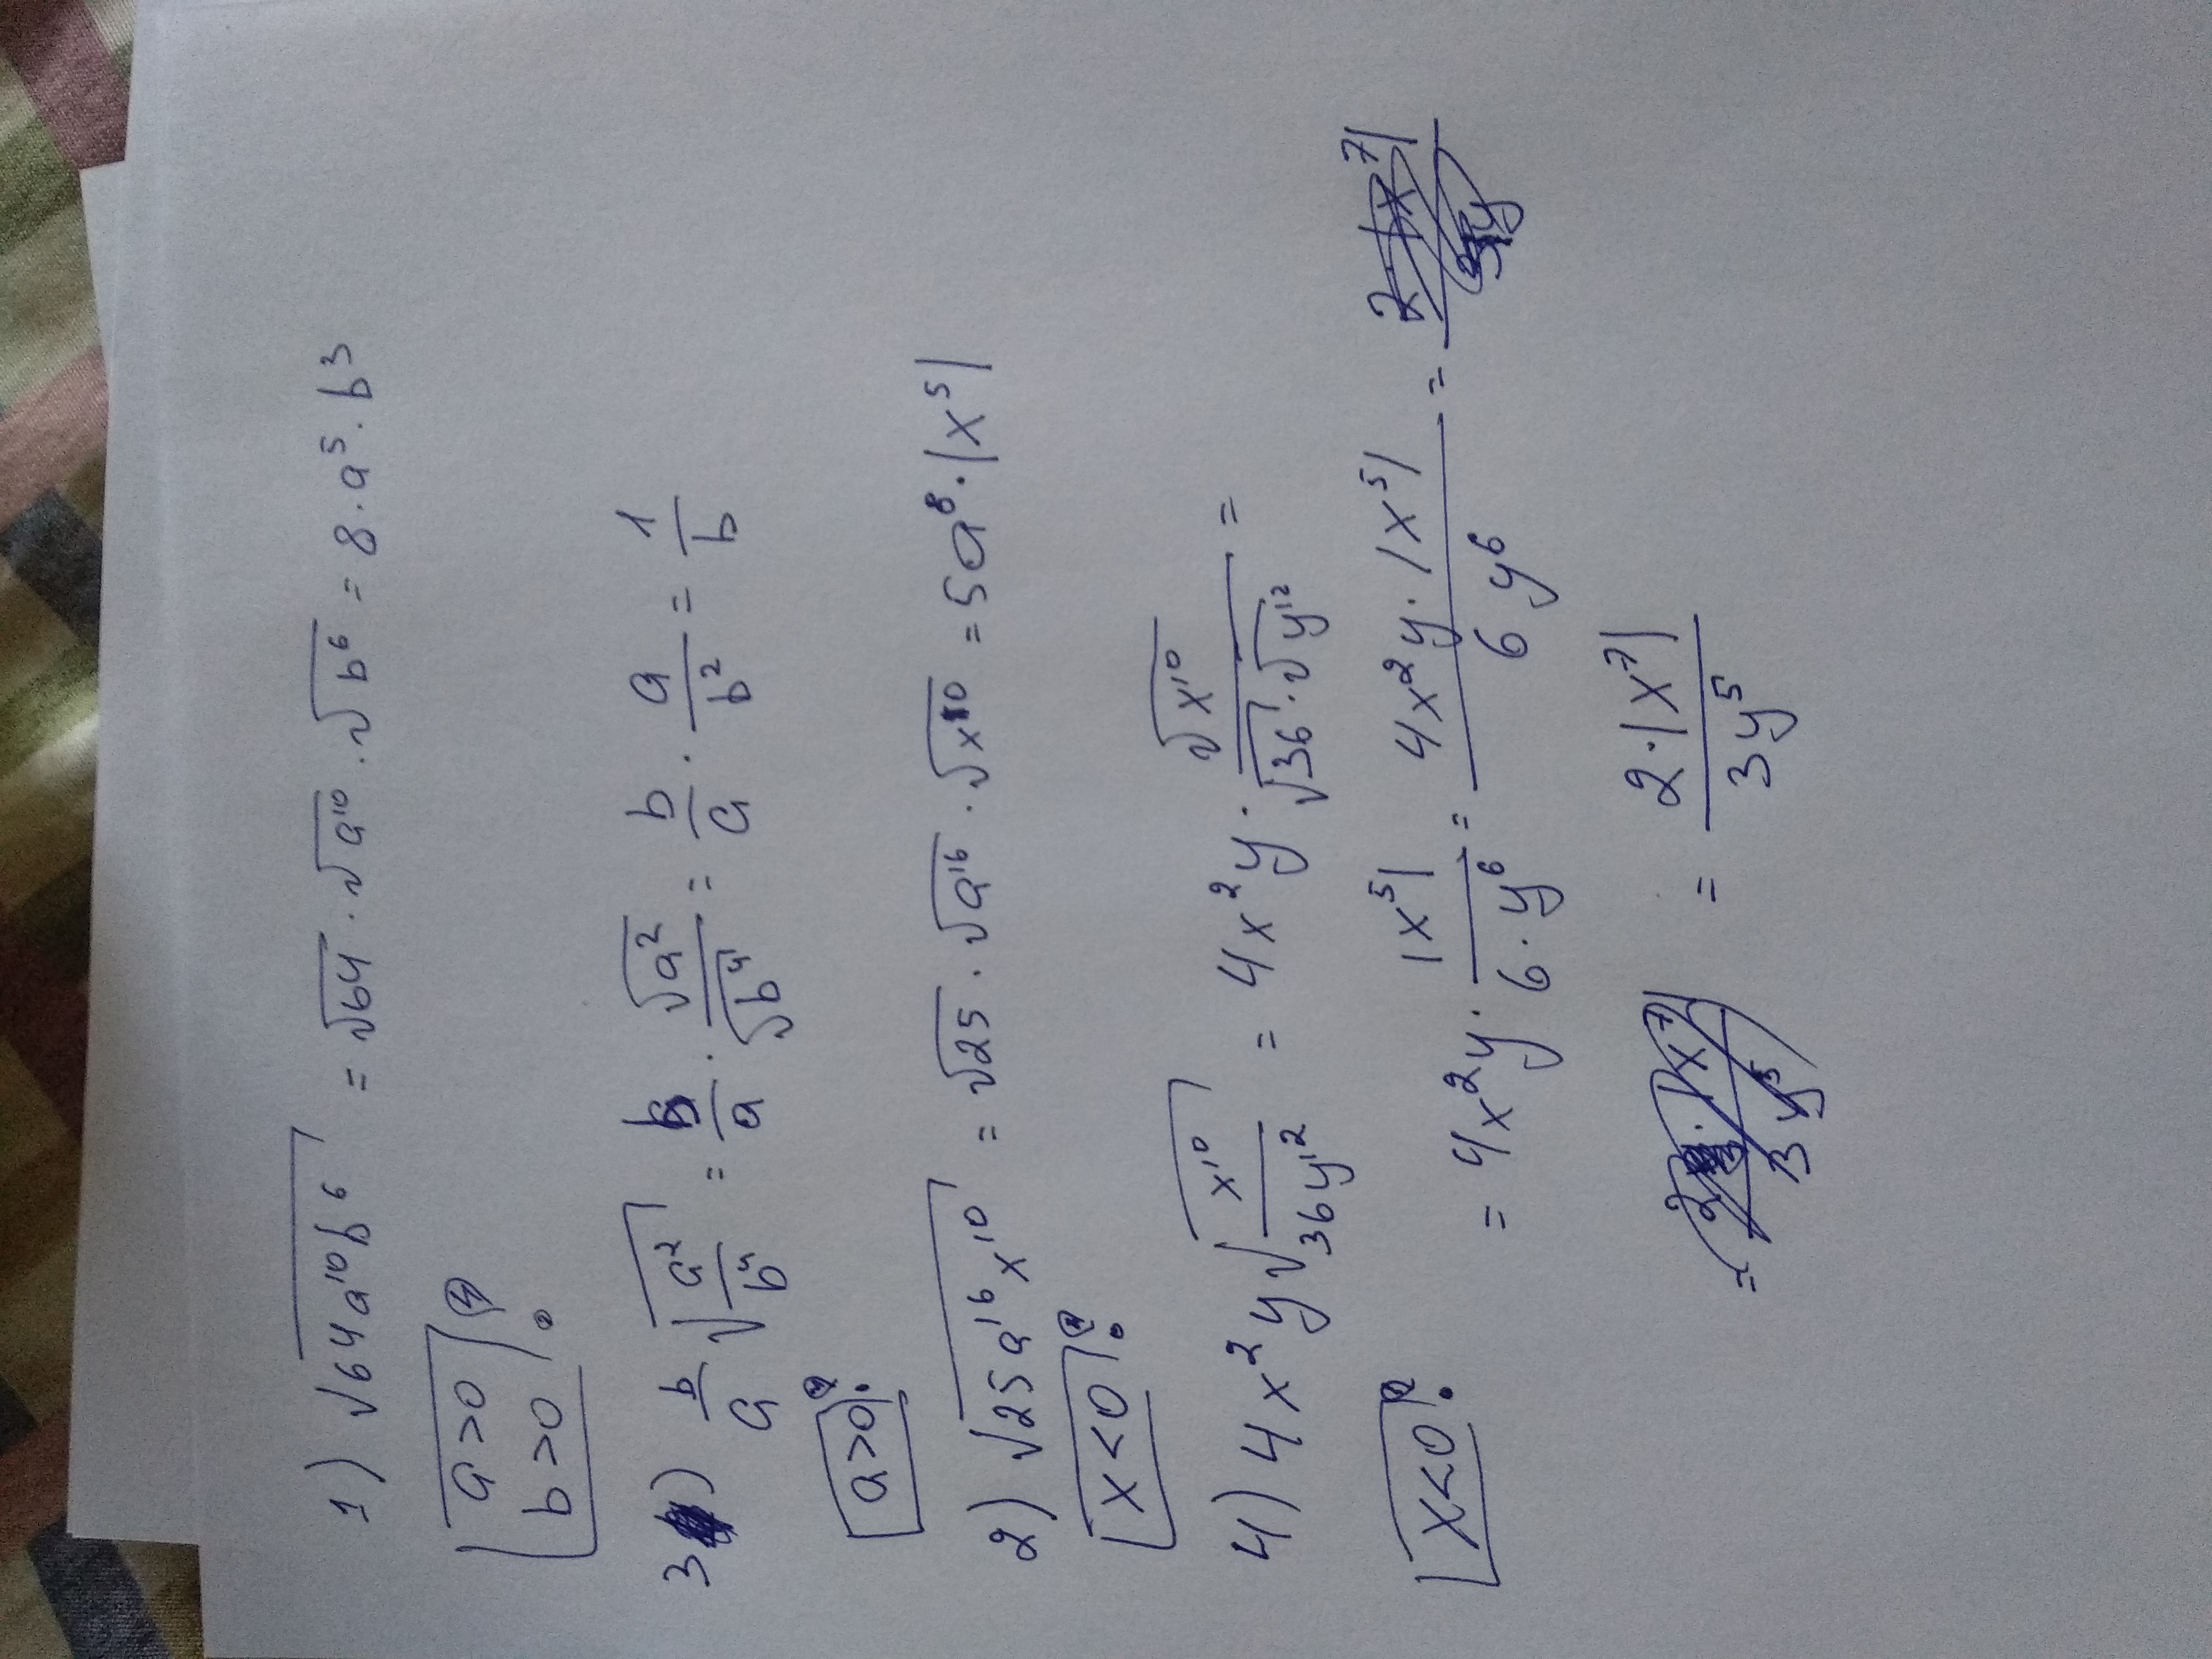 1) √64a¹⁰b⁶ = √64 · √a¹⁰ · √b⁶ = 8 · a⁵ · b³
a>0
b>0 !
3) b/a √a²/b⁴ = b/a · √a²/√b⁴ = b/a · a/b² = 1/b
a>0 !
2) √25a¹⁶x¹⁰ = √25 · √a¹⁶ · √x¹⁰ = 5a⁸ · |x⁵|
x<0 !
4) 4x²y √x¹⁰/36y¹² = 4x²y · √x¹⁰/√36 · √y¹² =
x<0 !
= 4x²y · |x⁵|/6 · y⁶ = 4x²y · |x⁵|/6y⁶ =
= 2 · |x⁷|/3y⁵